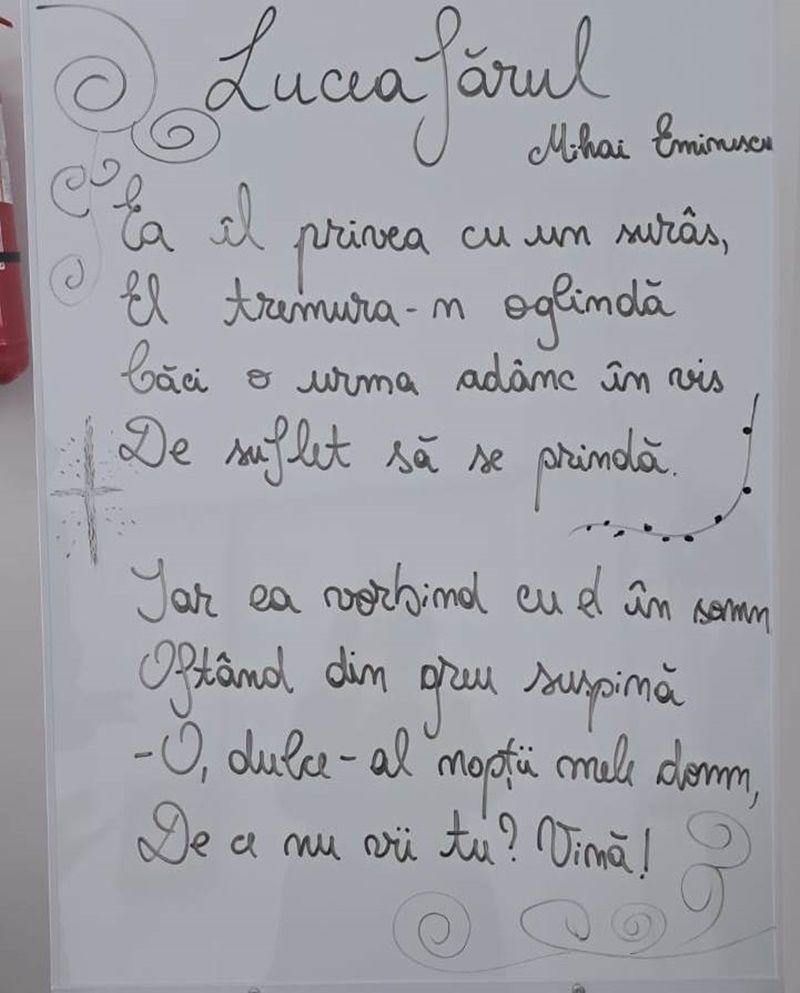 Luceafărul
Mihai Eminescu
Ea îl privea cu un surâs,
El tremura-n oglindă
Căci o urma adânc în vis
De suflet să se prindă.
Iar ea vorbind cu el în somn
Oftând din greu suspină
-O, dulce-al nopții mele domn,
De ce nu vii tu? Vină!